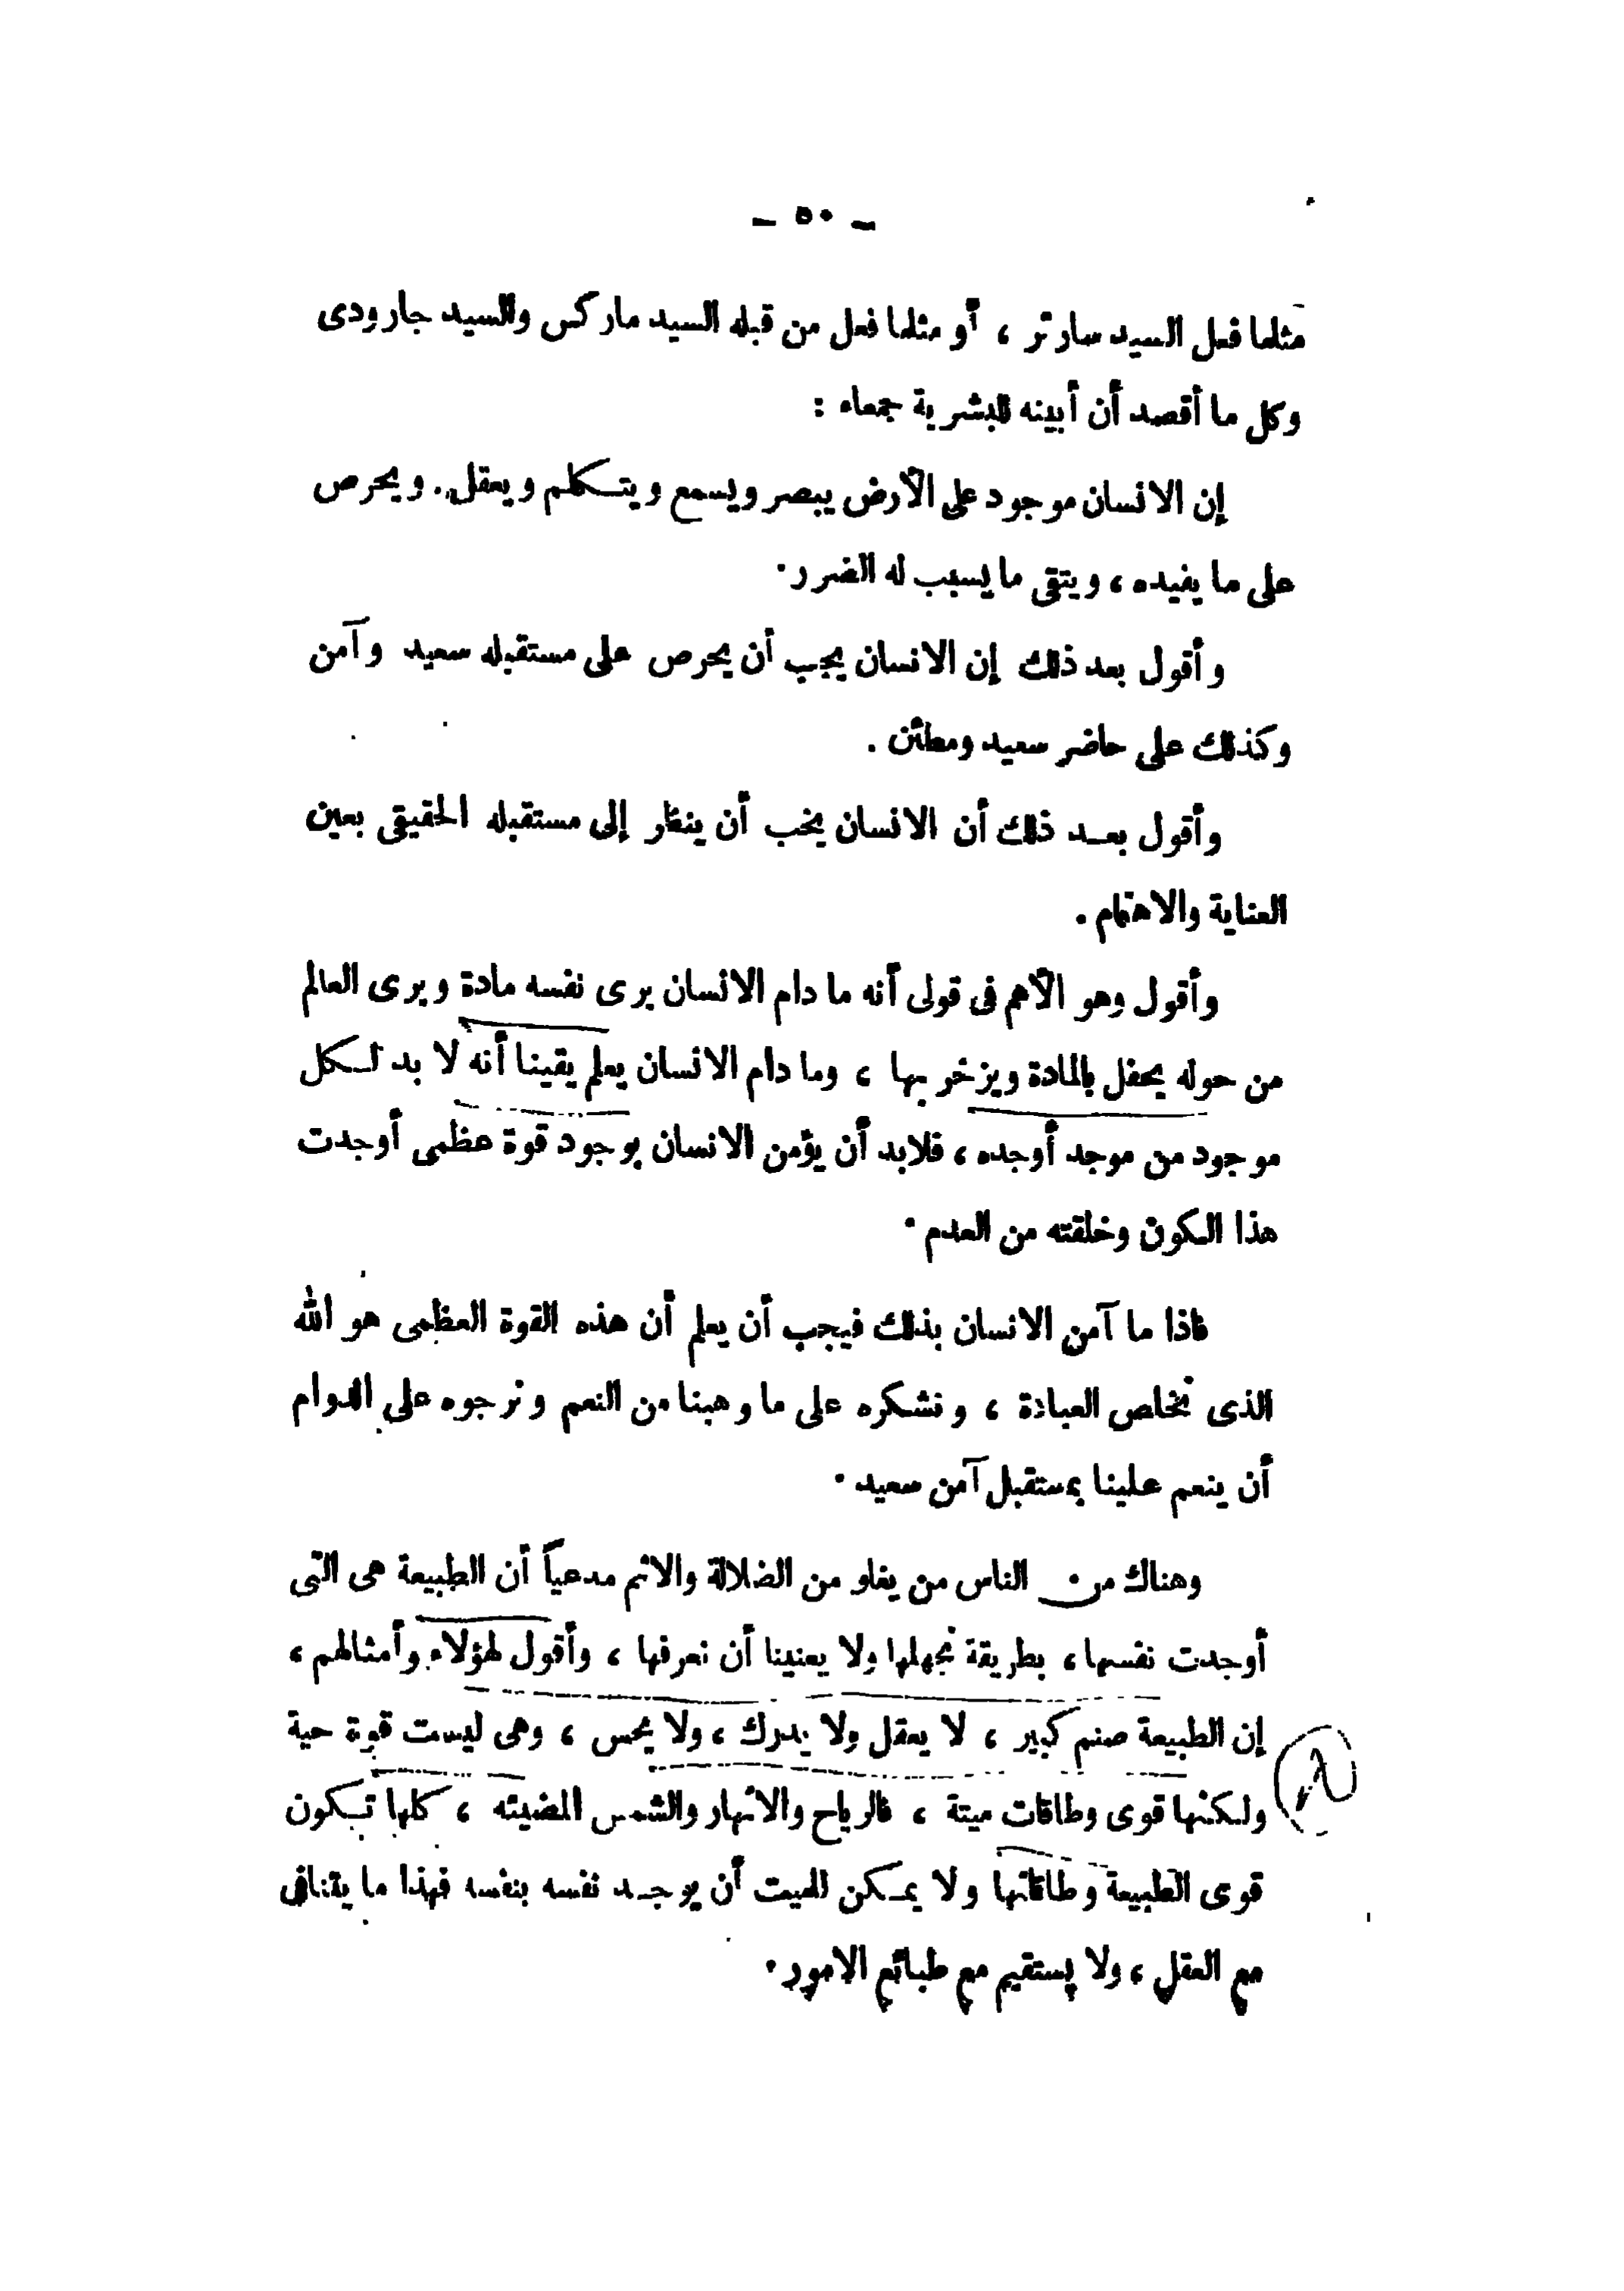 — ٥٠ —
مثلما فعل السيد سارتر ، أو مثلما فعل من قبله السيد ماركس والسيد جارودى
وكل ما أقصد أن أبينه للبشرية جمعاء :
إن الانسان موجود على الأرض يبصر ويسمع ويتكلم ويعقل. ويحرص
على ما يفيده ، ويتقى ما يسبب له الضرر .
وأقول بعد ذلك إن الانسان يجب أن يحرص على مستقبله سعيد وآمن
وكذلك على حاضر سعيد ومطئن .
وأقول بعد ذلك أن الانسان يخب أن ينظر إلى مستقبله الحقيقى بعين
العناية والاهتمام .
وأقول وهو الأهم فى قولى أنه ما دام الانسان يرى نفسه مادة ويرى العالم
من حوله يحفل بالمادة ويزخر بها ، وما دام الانسان يعلم يقينا أنه لا بد لكل
موجود من موجد أوجده ، فلابد أن يؤمن الانسان بوجود قوة عظمى أوجدت
هذا الكون وخلقته من العدم .
فاذا ما آمن الانسان بذلك فيجب أن يعلم أن هذه القوة العظمى هو الله
الذى نخلص العبادة ، ونشكره على ما وهبنا من النعم ونرجوه على الدوام
أن ينعم علينا بمستقبل آمن سعيد .
وهناك من الناس من يغلو من الضلالة والاثم مدعياً أن الطبيعة هى التى
أوجدت نفسها ، بطريقة نجهلها ولا يعنينا أن نعرفها ، وأقول لهؤلاء وأمثالهم ،
إن الطبيعة صنم كبير ، لا يعقل ولا يدرك ، ولا يحس ، وهى ليست قوة حية
ولكنها قوى وطاقات ميتة ، فالرياح والانهار والشمس المضيئه ، كلها تكون
قوى الطبيعة وطاقاتها ولا يمكن للميت أن يوجد نفسه بنفسه فهذا ما يتنافى
مع العقل ، ولا يستقيم مع طبائع الامور .